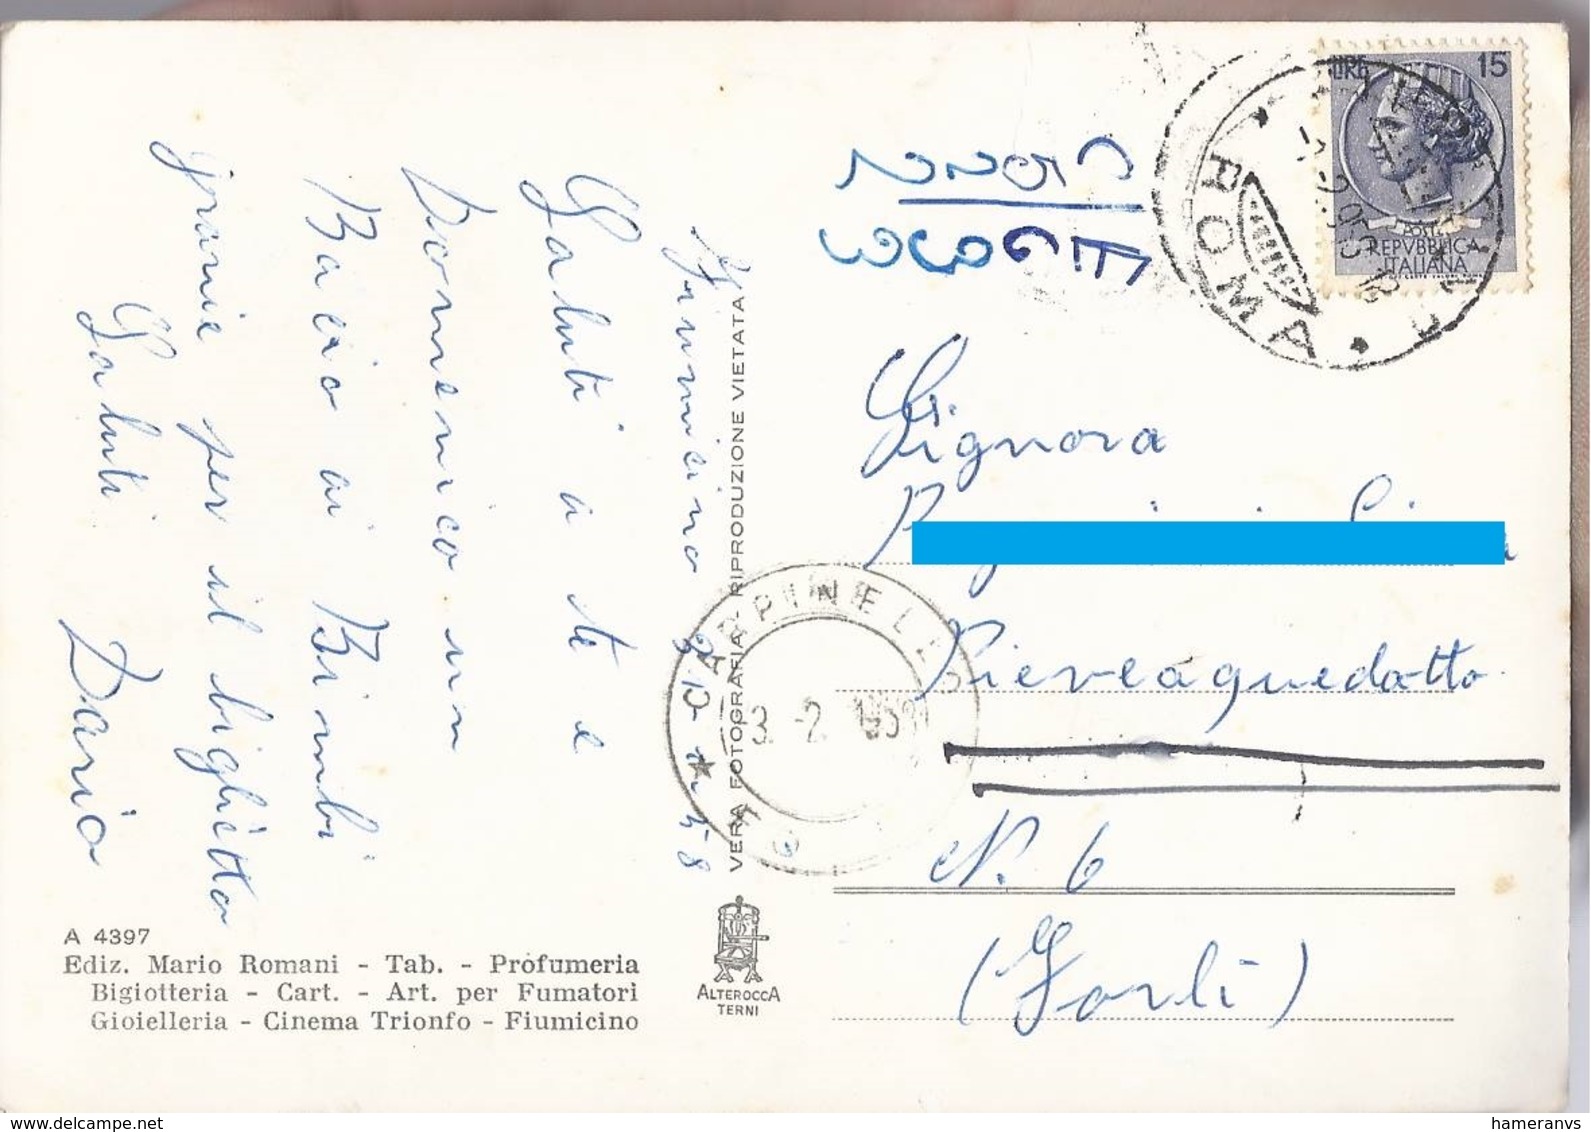 Fiumicino 3-2-58
Saluti a te e
Domenico un
Bacio ai Bimbi
grazie per il biglietto
Saluti Dario
A 4397
Ediz. Mario Romani - Tab. - Profumeria
Bigiotteria - Cart. - Art. per Fumatori
Gioielleria - Cinema Trionfo - Fiumicino
VERA FOTOGRAFIA - RIPRODUZIONE VIETATA
ALTEROCCA
TERNI
CARPINELLO
3 -2 1958
LIRE 15
POSTE
REPVBBLICA
ITALIANA
ROMA
Signora
Pieveaquedotto
N. 6
(Forlì)
www.delcampe.net
hameranvs